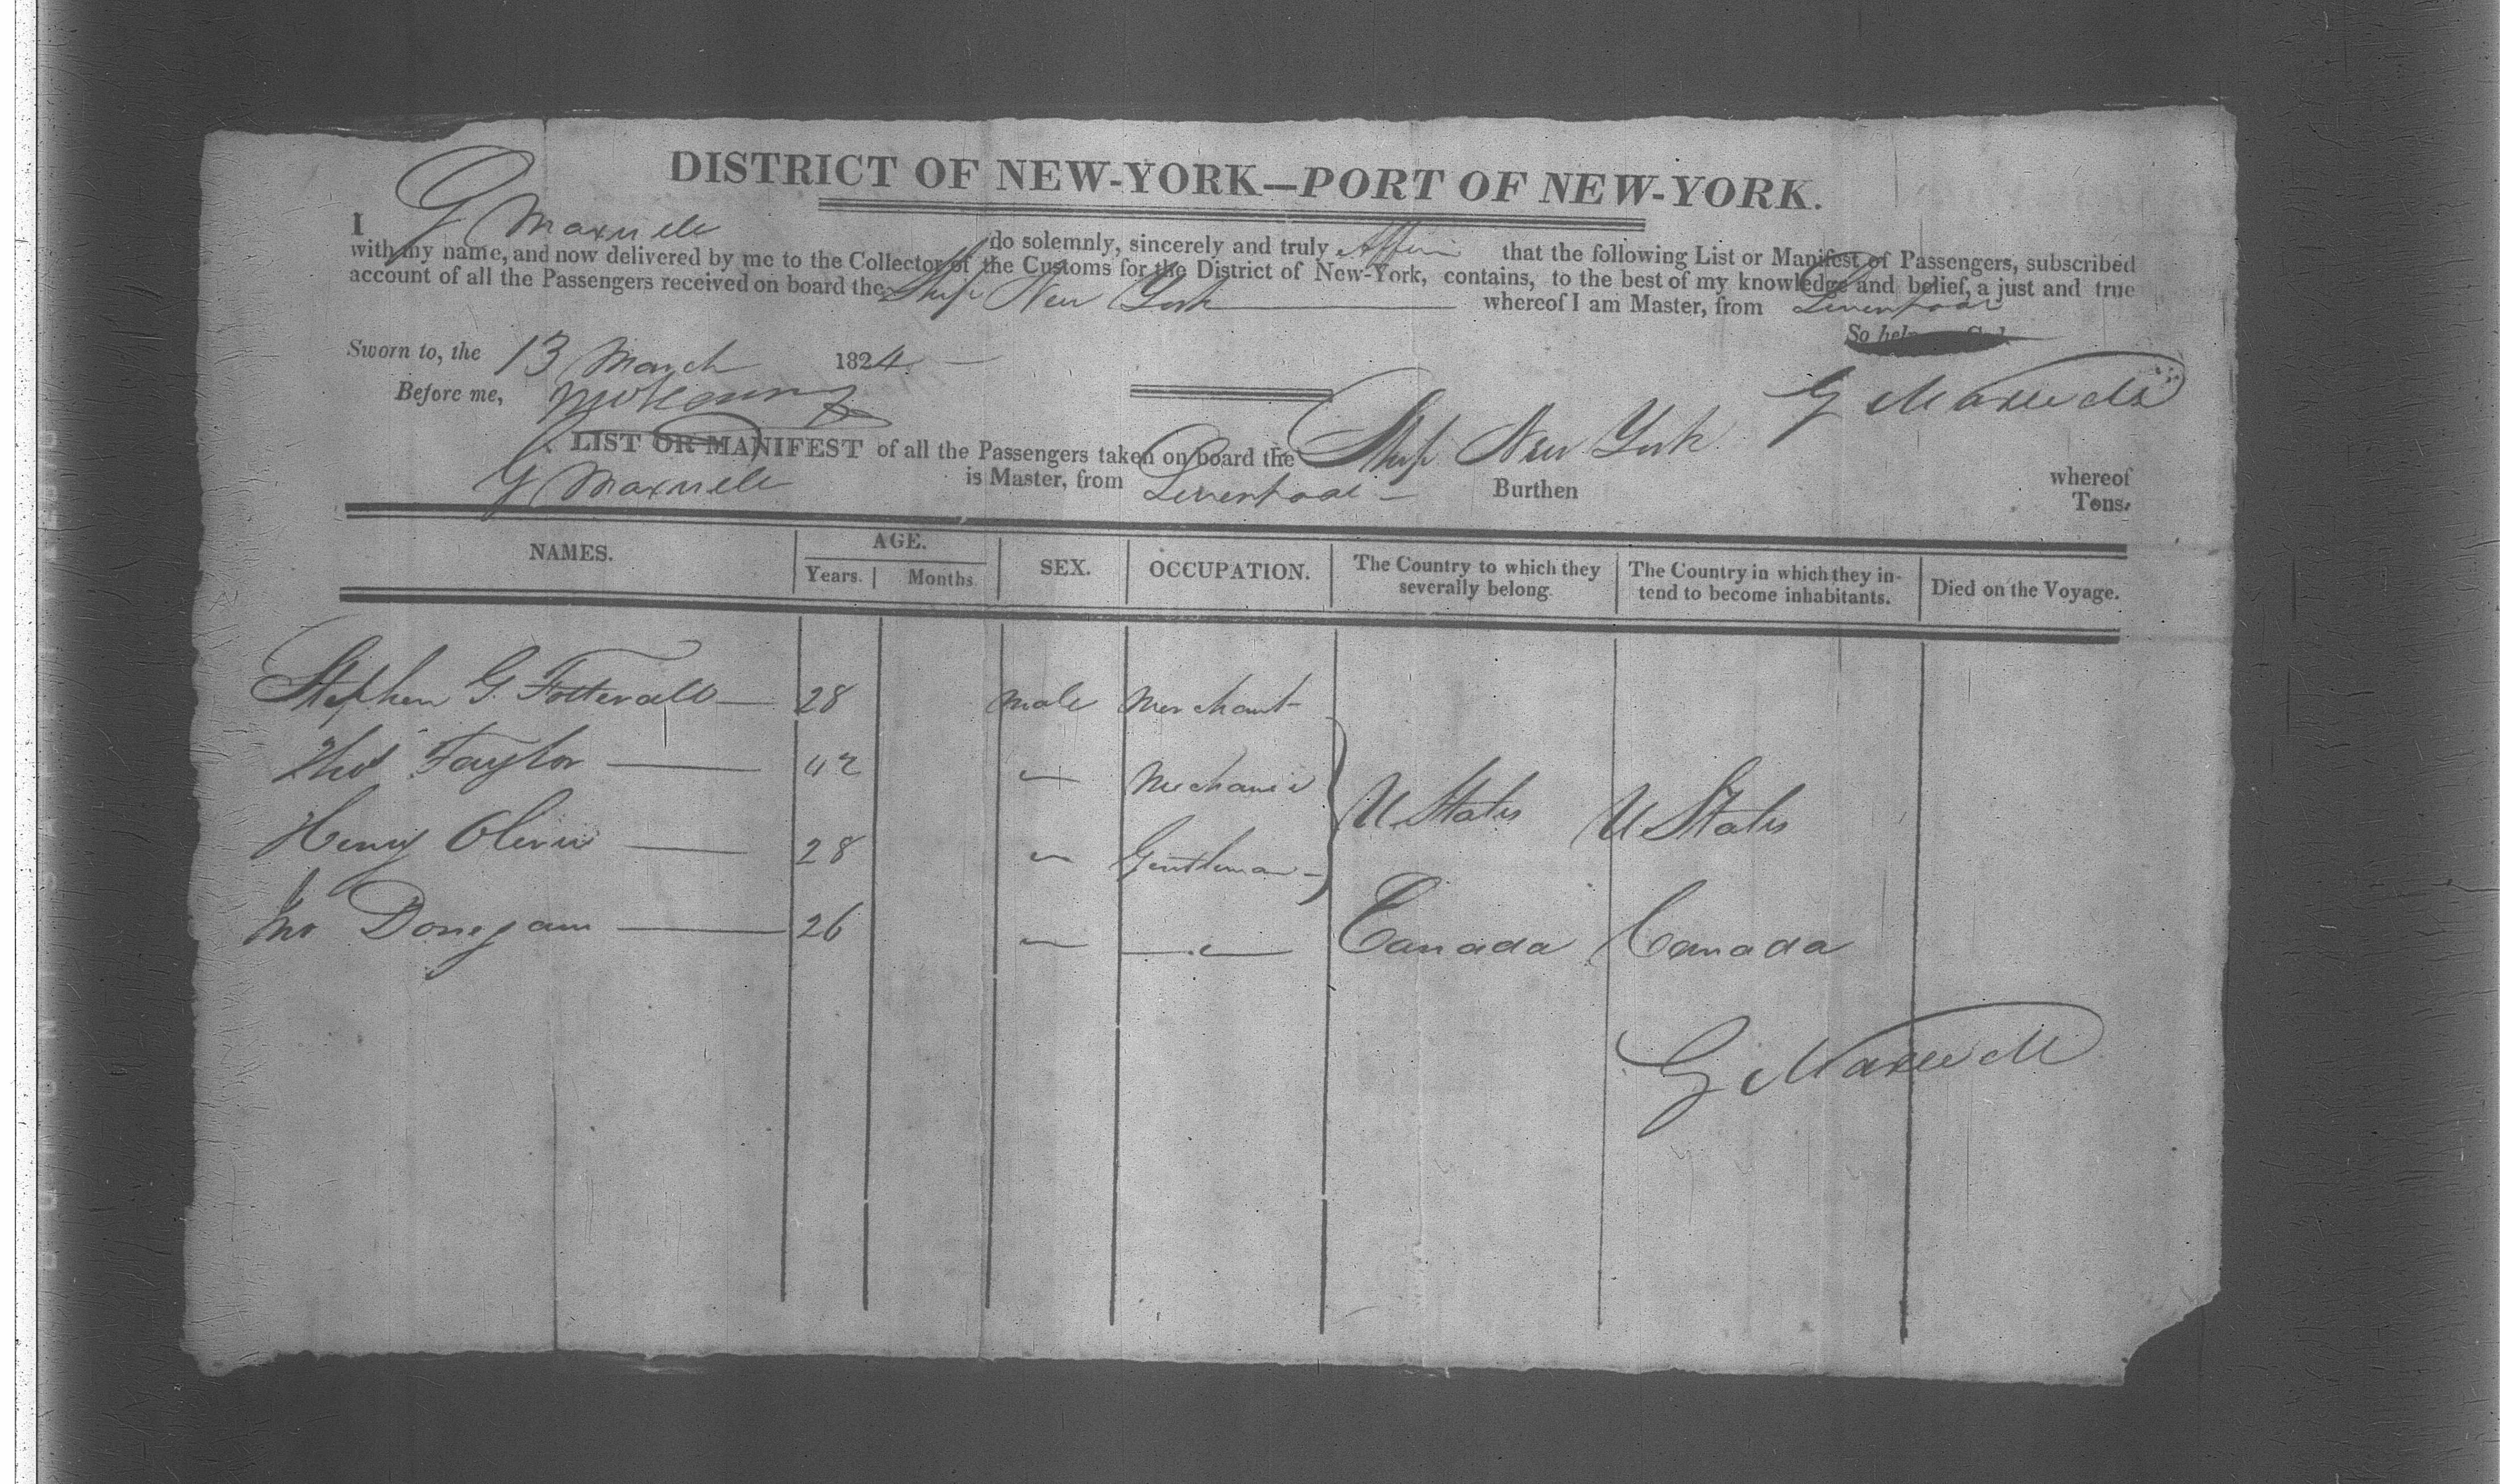 DISTRICT OF NEW-YORK—PORT OF NEW-YORK.
I G Maxwell do solemnly, sincerely and truly Affirm that the following List or Manifest of Passengers, subscribed
with my name, and now delivered by me to the Collector of the Customs for the District of New-York, contains, to the best of my knowledge and belief, a just and true
account of all the Passengers received on board the Ship New York whereof I am Master, from Liverpool
So help God
Sworn to, the 13 March 1824
Before me,
G Maxwell
LIST OR MANIFEST of all the Passengers taken on board the Ship New York whereof
G Maxwell is Master, from Liverpool Burthen Tons.
NAMES. AGE. SEX. OCCUPATION. The Country to which they severally belong. The Country in which they intend to become inhabitants. Died on the Voyage.
Years. Months.
Stephen G. Fotterall 28 male Merchant
Thos Taylor 42 Mechanic
U States U States
Henry Oliver 28 Gentleman
Jno Donegani 26 Canada Canada
G Maxwell